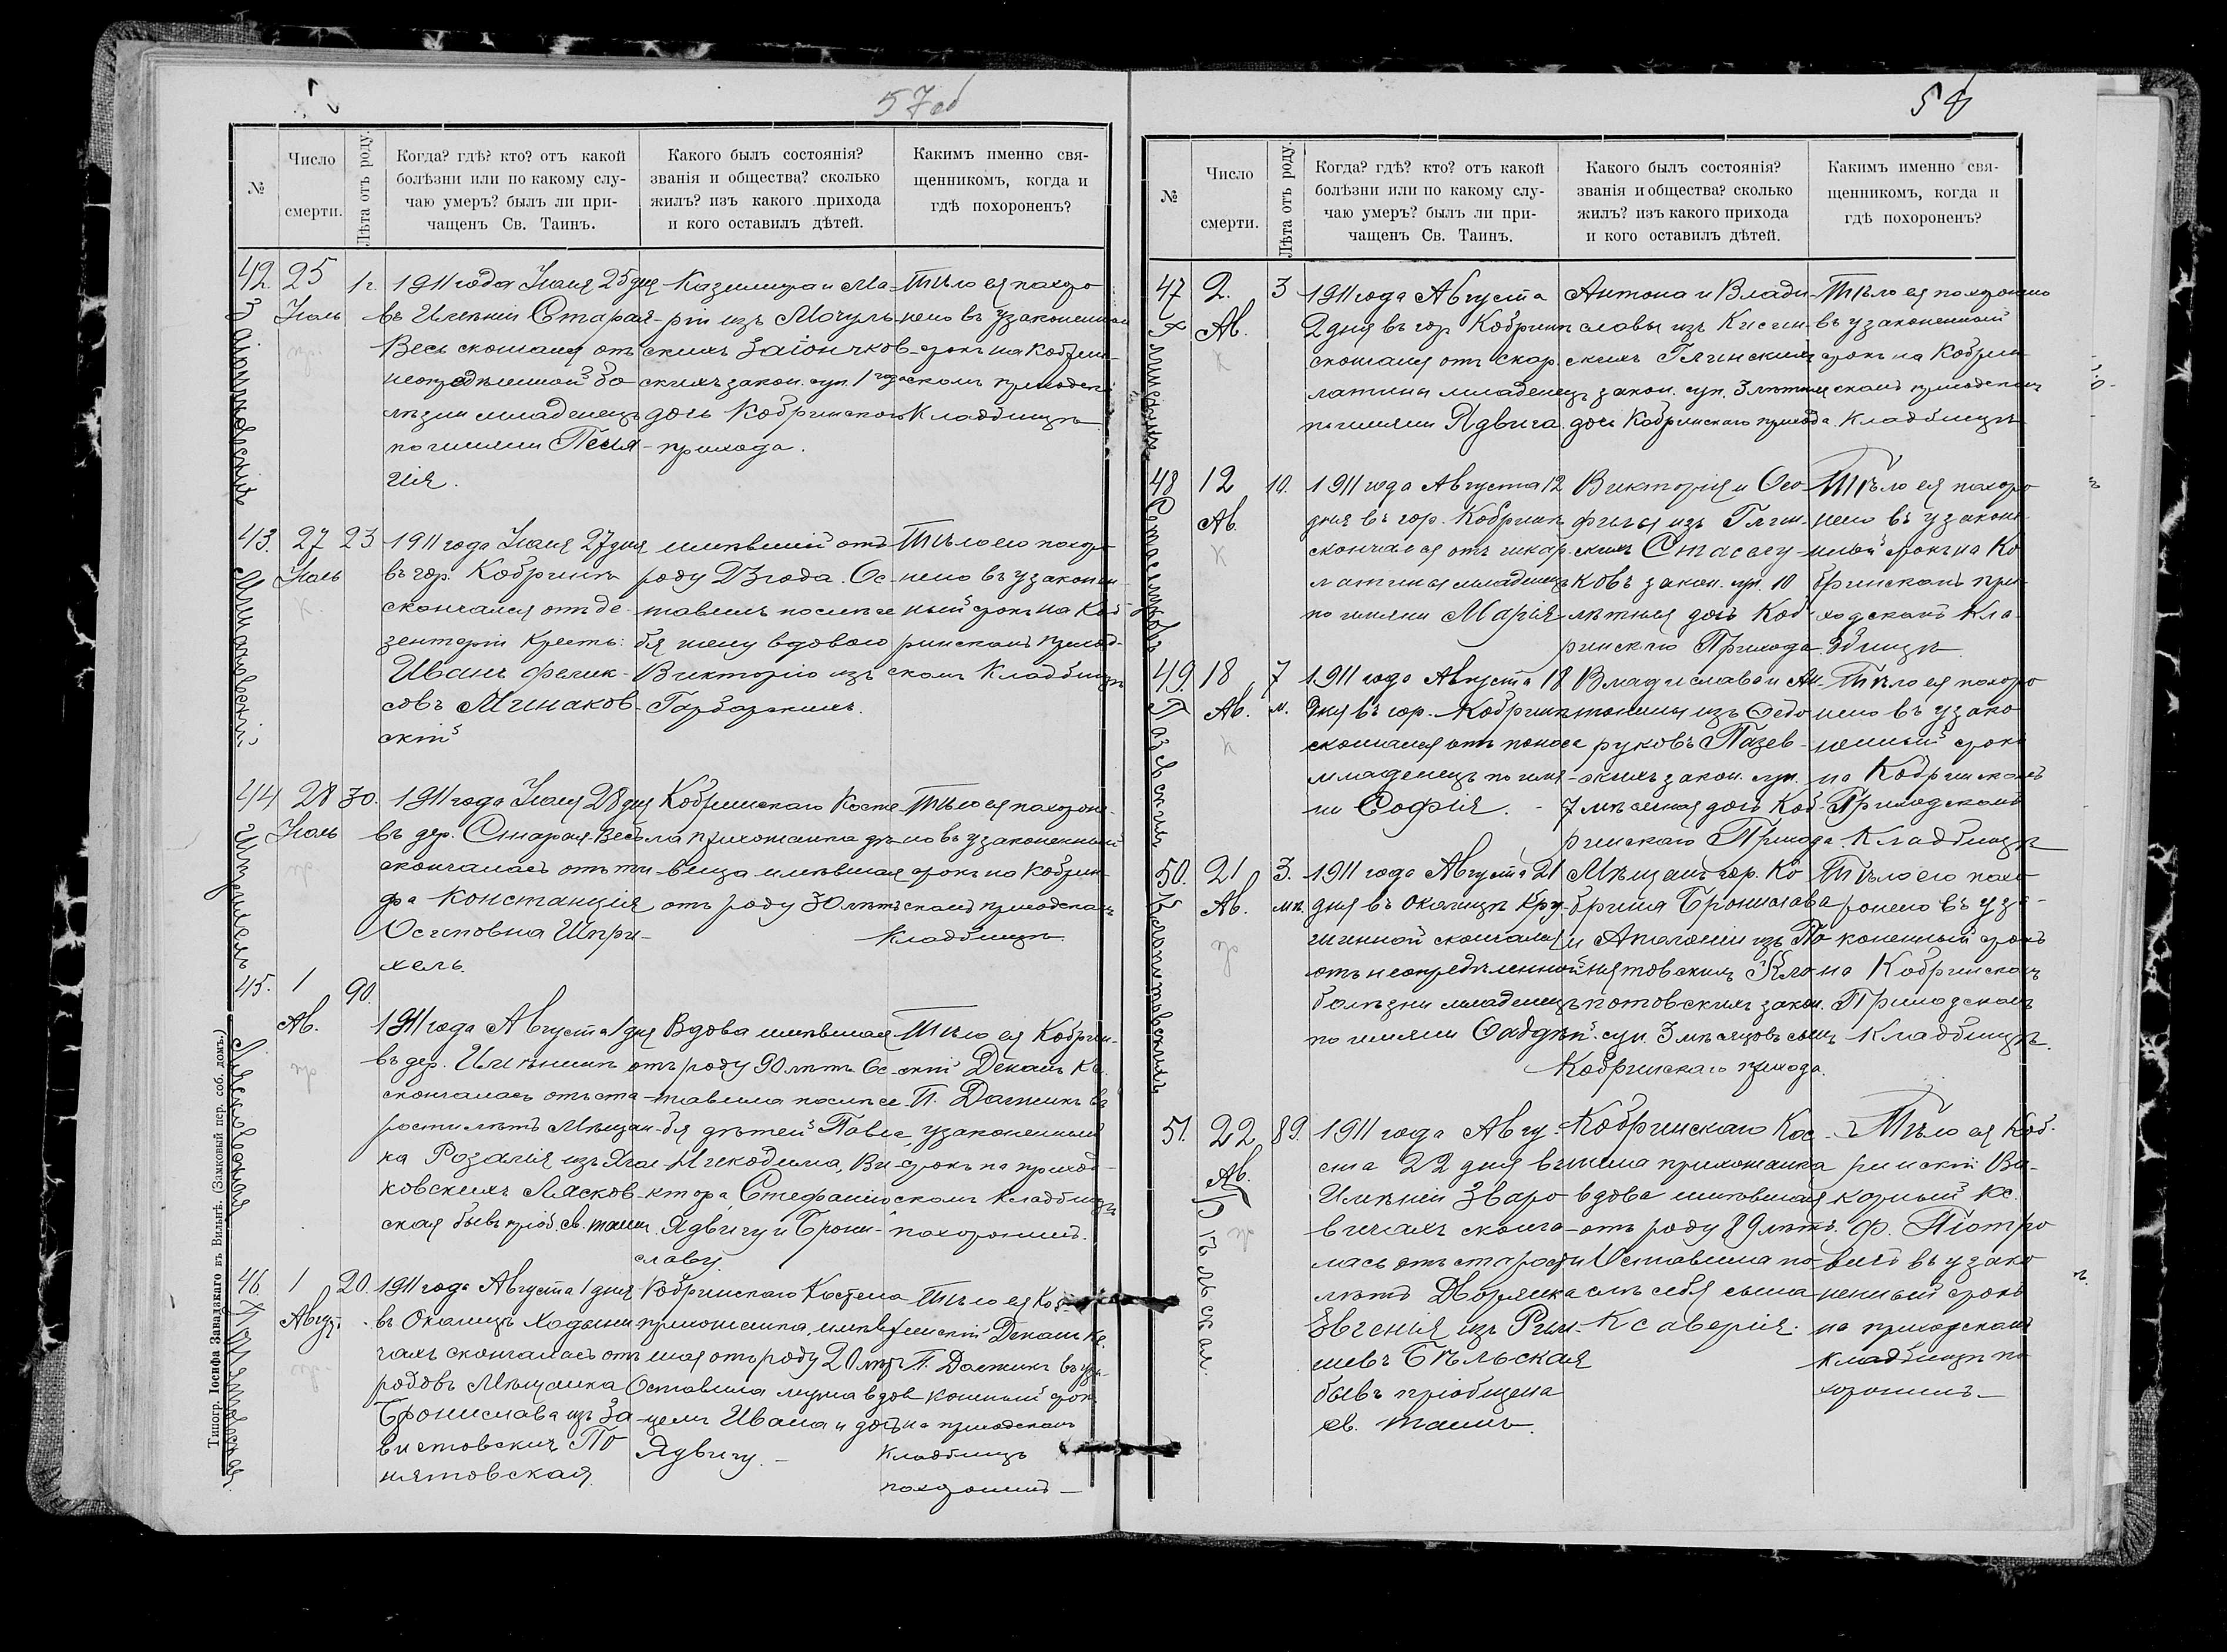 57об
№
Число
смерти.
Лѣта отъ роду.
Когда? гдѣ? кто? отъ какой
болѣзни или по какому слу-
чаю умеръ? былъ ли при-
чащенъ Св. Таинъ.
Какого былъ состоянія?
званія и общества? сколько
жилъ? изъ какого прихода
и кого оставилъ дѣтей.
Какимъ именно свя-
щенникомъ, когда и
гдѣ похороненъ?
42.
25
Іюль
1 г.
1911 года Іюля 25 дня
въ Имѣніи Старая-
Весь скончался отъ
неопредѣленной бо-
лѣзни младенецъ
по имени
Казимира и Ма-
ріи изъ Мочуль-
скихъ Заіончков-
скихъ закон. суп. 1 год
дочь Кобринскаго
прихода.
Тѣло ея похоро
нено въ узаконенный
срокъ на Кобрин-
скомъ приходск.
Кладбищѣ
43.
27
Іюль
23
1911 года Іюля 27 дня
въ гор. Кобринѣ
скончался отъ де-
зентеріи крестъ.
Иванъ Фелик-
совъ Минаков-
скій
имѣвшій отъ
роду 23 года. Ос-
тавилъ послѣ се
бя жену вдовою
Викторію изъ
Гарбарскихъ.
Тѣло его похоро
нено въ узаконен
ный срокъ на Коб-
ринскомъ приход-
скомъ Кладбищѣ
Минаковскій
44
28
Іюль
30.
1911 года Іюля 28 дня
въ дер. Старая-Весь
скончалась отъ ти-
фа Констанція
Осиповна Шпри-
хель.
Кобринскаго Косте
ла прихожанка дѣ
вица имѣвшая
отъ роду 30 лѣтъ
Тѣло ея похороне-
но въ узаконенный
срокъ на Кобрин-
скомъ приходскомъ
Кладбищѣ.
45.
1
Ав.
90.
1911 года Августа 1 дня
въ дер. Имѣнинѣ
скончалась отъ ста-
рости лѣтъ Мѣщан-
ка Розалія изъ
ковскихъ Лясков-
ская бывъ пріоб. св. таинъ
Вдова имѣвшая
отъ роду 90 лѣтъ. Ос-
тавила послѣ се
бя дѣтей Павла
Никодима, Ви-
ктора, Стефанію
Ядвигу и Брони-
славу.
Тѣло ея Кобрин-
скій Деканъ Кс.
П. въ
узаконенный
срокъ на приход-
скомъ Кладбищѣ
похоронилъ.
Лясковская
46.
1
Авгус.
20.
1911 года Августа 1 дня
въ Околицѣ Ходыни
чахъ скончалась отъ
родовъ Мѣщанка
Бронислава изъ За-
вистовскихъ По
нятовская.
Кобринскаго Костела
прихожанка, имѣв
шая отъ роду 20 лѣтъ
Оставила мужа вдов
цемъ Ивана и дочь
Ядвигу. -
Тѣло ея Коб
ринскій Деканъ Кс.
П. въ уза-
коненный срок
на приходскомъ
Кладбищѣ
похоронилъ -
Понятовская
Типогр. Іосифа Завадзкаго въ Вильнѣ. (Замковый пер. соб. домъ.)
58
№
Число
смерти.
Лѣта отъ роду.
Когда? гдѣ? кто? отъ какой
болѣзни или по какому слу-
чаю умеръ? былъ ли при-
чащенъ Св. Таинъ.
Какого былъ состоянія?
званія и общества? сколько
жилъ? изъ какого прихода
и кого оставилъ дѣтей.
Какимъ именно свя-
щенникомъ, когда и
гдѣ похороненъ?
47
2.
Ав.
3
1911 года Августа
2 дня въ гор. Кобринѣ
скончался отъ скар-
латины младенецъ
по имени Ядвига.
Антона и Влади-
славы изъ
скихъ
закон. суп. 3 лѣтняя
дочь Кобринскаго прихода.
Тѣло ея похоронено
въ узаконенный
срокъ на Кобрин-
скомъ приходскомъ
Кладбищѣ
48
12
Ав.
10.
1911 года Августа 12
дня въ гор. Кобринѣ
скончался отъ шкар
латины младенецъ
по имени Марья
Викторія и Осо-
филы изъ
скихъ Стаселу-
ковъ закон. суп. 10
лѣтняя дочь Коб-
ринскаго Прихода
Тѣло ея похоро
нено въ узаконе-
нный срокъ на Ко
бринскомъ при-
ходскомъ Кла-
дбищѣ
49.
18
Ав.
7
м.
1911 года Августа 18
дня въ гор. Кобринѣ
скончался отъ поноса
младенецъ по име-
ни Софія. -
Владислава и Ан-
тонины изъ Ѳедо
руковъ Пазев-
скихъ закон. суп.
7 мѣсячная дочь Коб-
ринскаго Прихода.
Тѣло ея похоро
нено въ узако-
ненный срокъ
на Кобринскомъ
Приходскомъ
Кладбищѣ
Пазевскихъ
50.
21
Ав.
3.
мѣ.
1911 года Августа 21
дня въ околицѣ Кру-
пинной скончался
отъ неопредѣленной
болѣзни младенецъ
по имени Ѳаддѣй.
Мѣщанъ гор. Ко
брина Бронислава
и Аполоніи изъ По
нятовскихъ Кло
потовскихъ закон.
суп. 3 мѣсяцовъ сынъ
Кобринскаго прихода.
Тѣло его похо
ронено въ уза-
коненный срокъ
на Кобринскомъ
Приходскомъ
Кладбищѣ.
Клопотовскихъ
51.
22
Ав.
89.
1911 года Авгу-
ста 22 дня въ
Имѣніи Зваро
вичахъ сконча-
лась отъ старости
лѣтъ Дворянка
Евгенія изъ
шевъ Бѣльская
бывъ пріобщена
св. таинъ.
Кобринскаго Кос-
тела прихожанка
вдова имѣвшая
отъ роду 89 лѣтъ.
Оставила по-
слѣ себя сына
Ксаверія.
Тѣло ея Коб-
ринскій Ви-
карный Кс.
Ф. Піотро
вичъ въ узако
ненный срокъ
на приходскомъ
кладбищѣ по
хоронилъ. -
Бѣльская